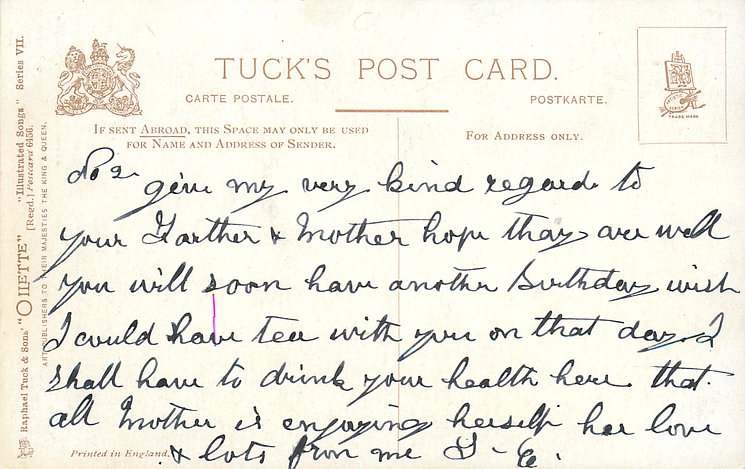 TUCK'S POST CARD.
CARTE POSTALE.
POSTKARTE.
IF SENT ABROAD, THIS SPACE MAY ONLY BE USED
FOR NAME AND ADDRESS OF SENDER.
FOR ADDRESS ONLY.
No 2
give my very kind regards to
your Farther & Mother hope thay are well
you will soon have another Birthday wish
I could have tea with you on that day. I
shall have to drink your health here that
all Mother is enjoying herself her love
& lots from me
Printed in England.
Raphael Tuck & Sons' "OILETTE" "Illustrated Songs" Series VII.
[Regd.] Postcard 6456.
ART PUBLISHERS TO THEIR MAJESTIES THE KING & QUEEN.
TRADE MARK